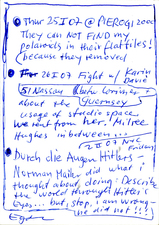 Thur 25 I 07 @ PIEROGI 2000
They can NOT FIND my
polaroids in their flatfiles!
because they removed
Thur 26 I 07 Fight w/ Karin
David
51 Nassau
about the Guernsey
usage of studio space
We went from her, McTree
Hughes in between...
27 07 NYC
Durch die Augen Hitlers -
Norman Mailer did what i
thought about, doing - Describe
the world through Hitler's
eyes... but, stop, i am wrong -
we did not!!!